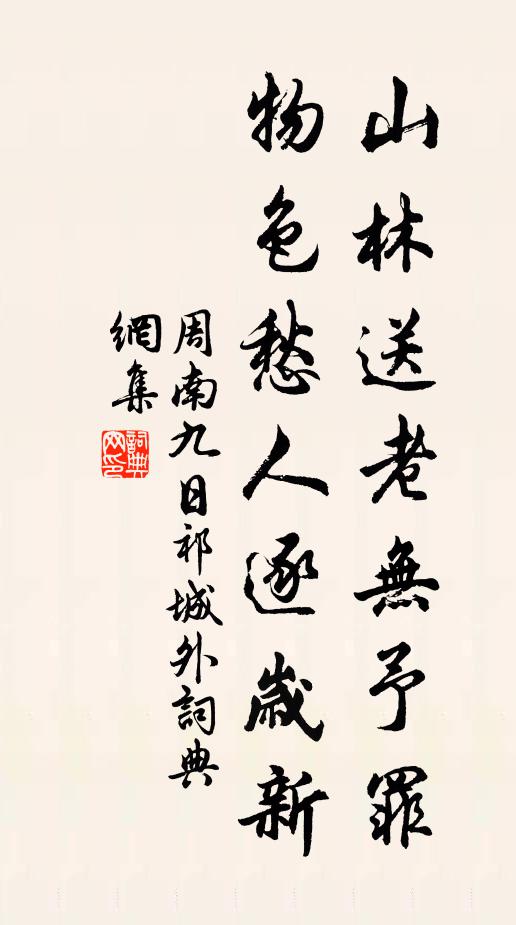 山林送老無予罪
物色愁人逐歲新
周南九日祁城外詞典
網集
詞典
网印